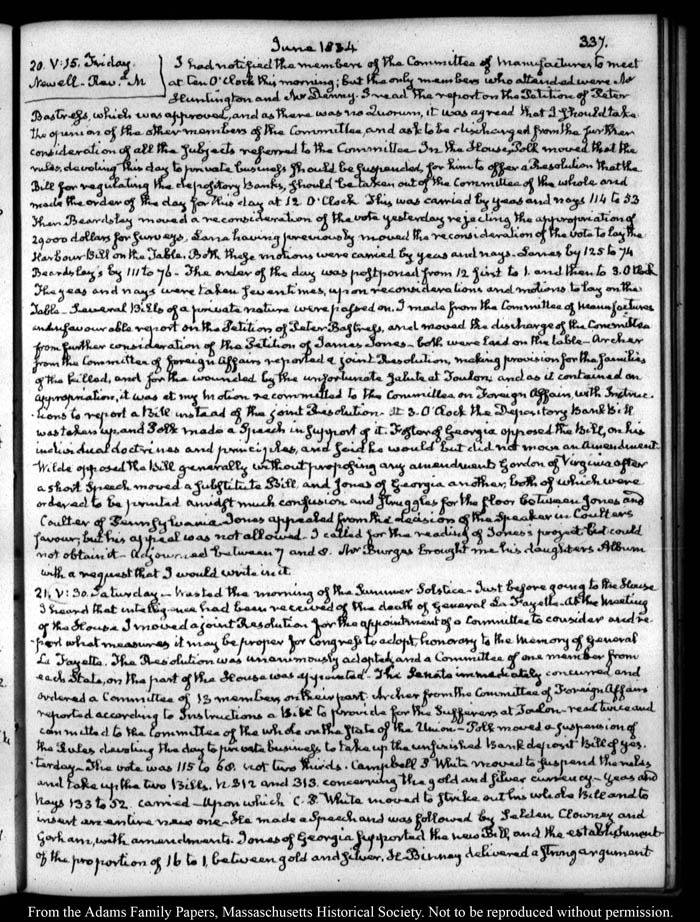 June 1834
337.
20. V:15. Friday.
Newell - Rev. M
I had notified the members of the Committee of Manufactures to meet
at ten O'Clock this morning; but the only members who attended were Mr
Huntington and Mr Denny. I read the report on the Petition of Peter
Bastress, which was approved, and as there was no Quorum, it was agreed that I should take
the opinion of the other members of the Committee, and ask to be discharged from the further
consideration of all the subjects referred to the Committee. In the House, Polk moved that the
rules, devoting this day to private business should be suspended, for him to offer a Resolution that the
Bill for regulating the depository Banks, should be taken out of the Committee of the whole and
made the order of the day for this day at 12 O'Clock. This was carried by yeas and nays 114 to 53
Then Beardsley moved a reconsideration of the vote yesterday rejecting the appropriation of
29000 dollars for Surveys, Lane having previously moved the reconsideration of the vote to lay the
Harbour Bill on the Table. Both these motions were carried by yeas and nays. Lanes by 125 to 74
Beardsley's by 111 to 76 - The order of the day was postponed from 12 first to 1. and then to 3. O'Clock
The yeas and nays were taken seven times, upon reconsiderations and motions to lay on the
Table - Several Bills of a private nature were passed on. I made from the Committee of Manufactures
an unfavourable report on the Petition of Peter Bastress, and moved the discharge of the Committee
from further consideration of the Petition of James Jones - both were laid on the table - Archer
from the Committee of Foreign Affairs reported a joint Resolution, making provision for the families
of the killed, and for the wounded by the unfortunate salute at Toulon; and as it contained an
appropriation, it was at my motion recommitted to the Committee on Foreign Affairs, with Instruc-
-tions to report a Bill instead of the joint Resolution. At 3. O'Clock the Depository Bank Bill
was taken up, and Polk made a Speech in support of it. Foster of Georgia opposed the Bill, on his
individual doctrines and principles, and said he would but did not move an amendment
Wilde opposed the Bill generally without proposing any amendment. Gordon of Virginia after
a short Speech moved a substitute Bill, and Jones of Georgia another, both of which were
ordered to be printed amidst much confusion and struggles for the floor between Jones and
Coulter of Pennsylvania. Jones appealed from the decision of the Speaker in Coulters
favour; but his appeal was not allowed. I called for the reading of Jones's project but could
not obtain it - Adjourned between 7 and 8. Mr Burges brought me his daughters Album
with a request that I would write in it.
21. V:30. Saturday - wasted the morning of the Summer Solstice - Just before going to the House
I heard that intelligence had been received of the death of General La Fayette - At the meeting
of the House I moved a joint Resolution for the appointment of a Committee to consider and re-
-port what measures it may be proper for Congress to adopt, honorary to the Memory of General
La Fayette. The Resolution was unanimously adopted, and a Committee of one member from
each State, on the part of the House was appointed. The Senate immediately concurred and
ordered a Committee of 13 members on their part. Archer from the Committee of Foreign Affairs
reported according to Instructions a Bill to provide for the Sufferers at Toulon - read twice and
committed to the Committee of the whole on the State of the Union - Polk moved a suspension of
the Rules devoting the day to private business to take up the unfinished Bank deposit Bill of yes-
terday - The vote was 115 to 68. not two thirds. Campbell P White moved to suspend the rules
and take up the two Bills, N. 312 and 313. concerning the gold and silver currency - yeas and
Nays 133 to 52 carried - Upon which C. P. White moved to strike out his whole Bill and to
insert an entire new one. He made a Speech and was followed by Selden, Clowney and
Gorham, with amendments. Jones of Georgia supported the new Bill, and the establishment
of the proportion of 16 to 1, between gold and silver. H Binney delivered a strong argument
From the Adams Family Papers, Massachusetts Historical Society. Not to be reproduced without permission.